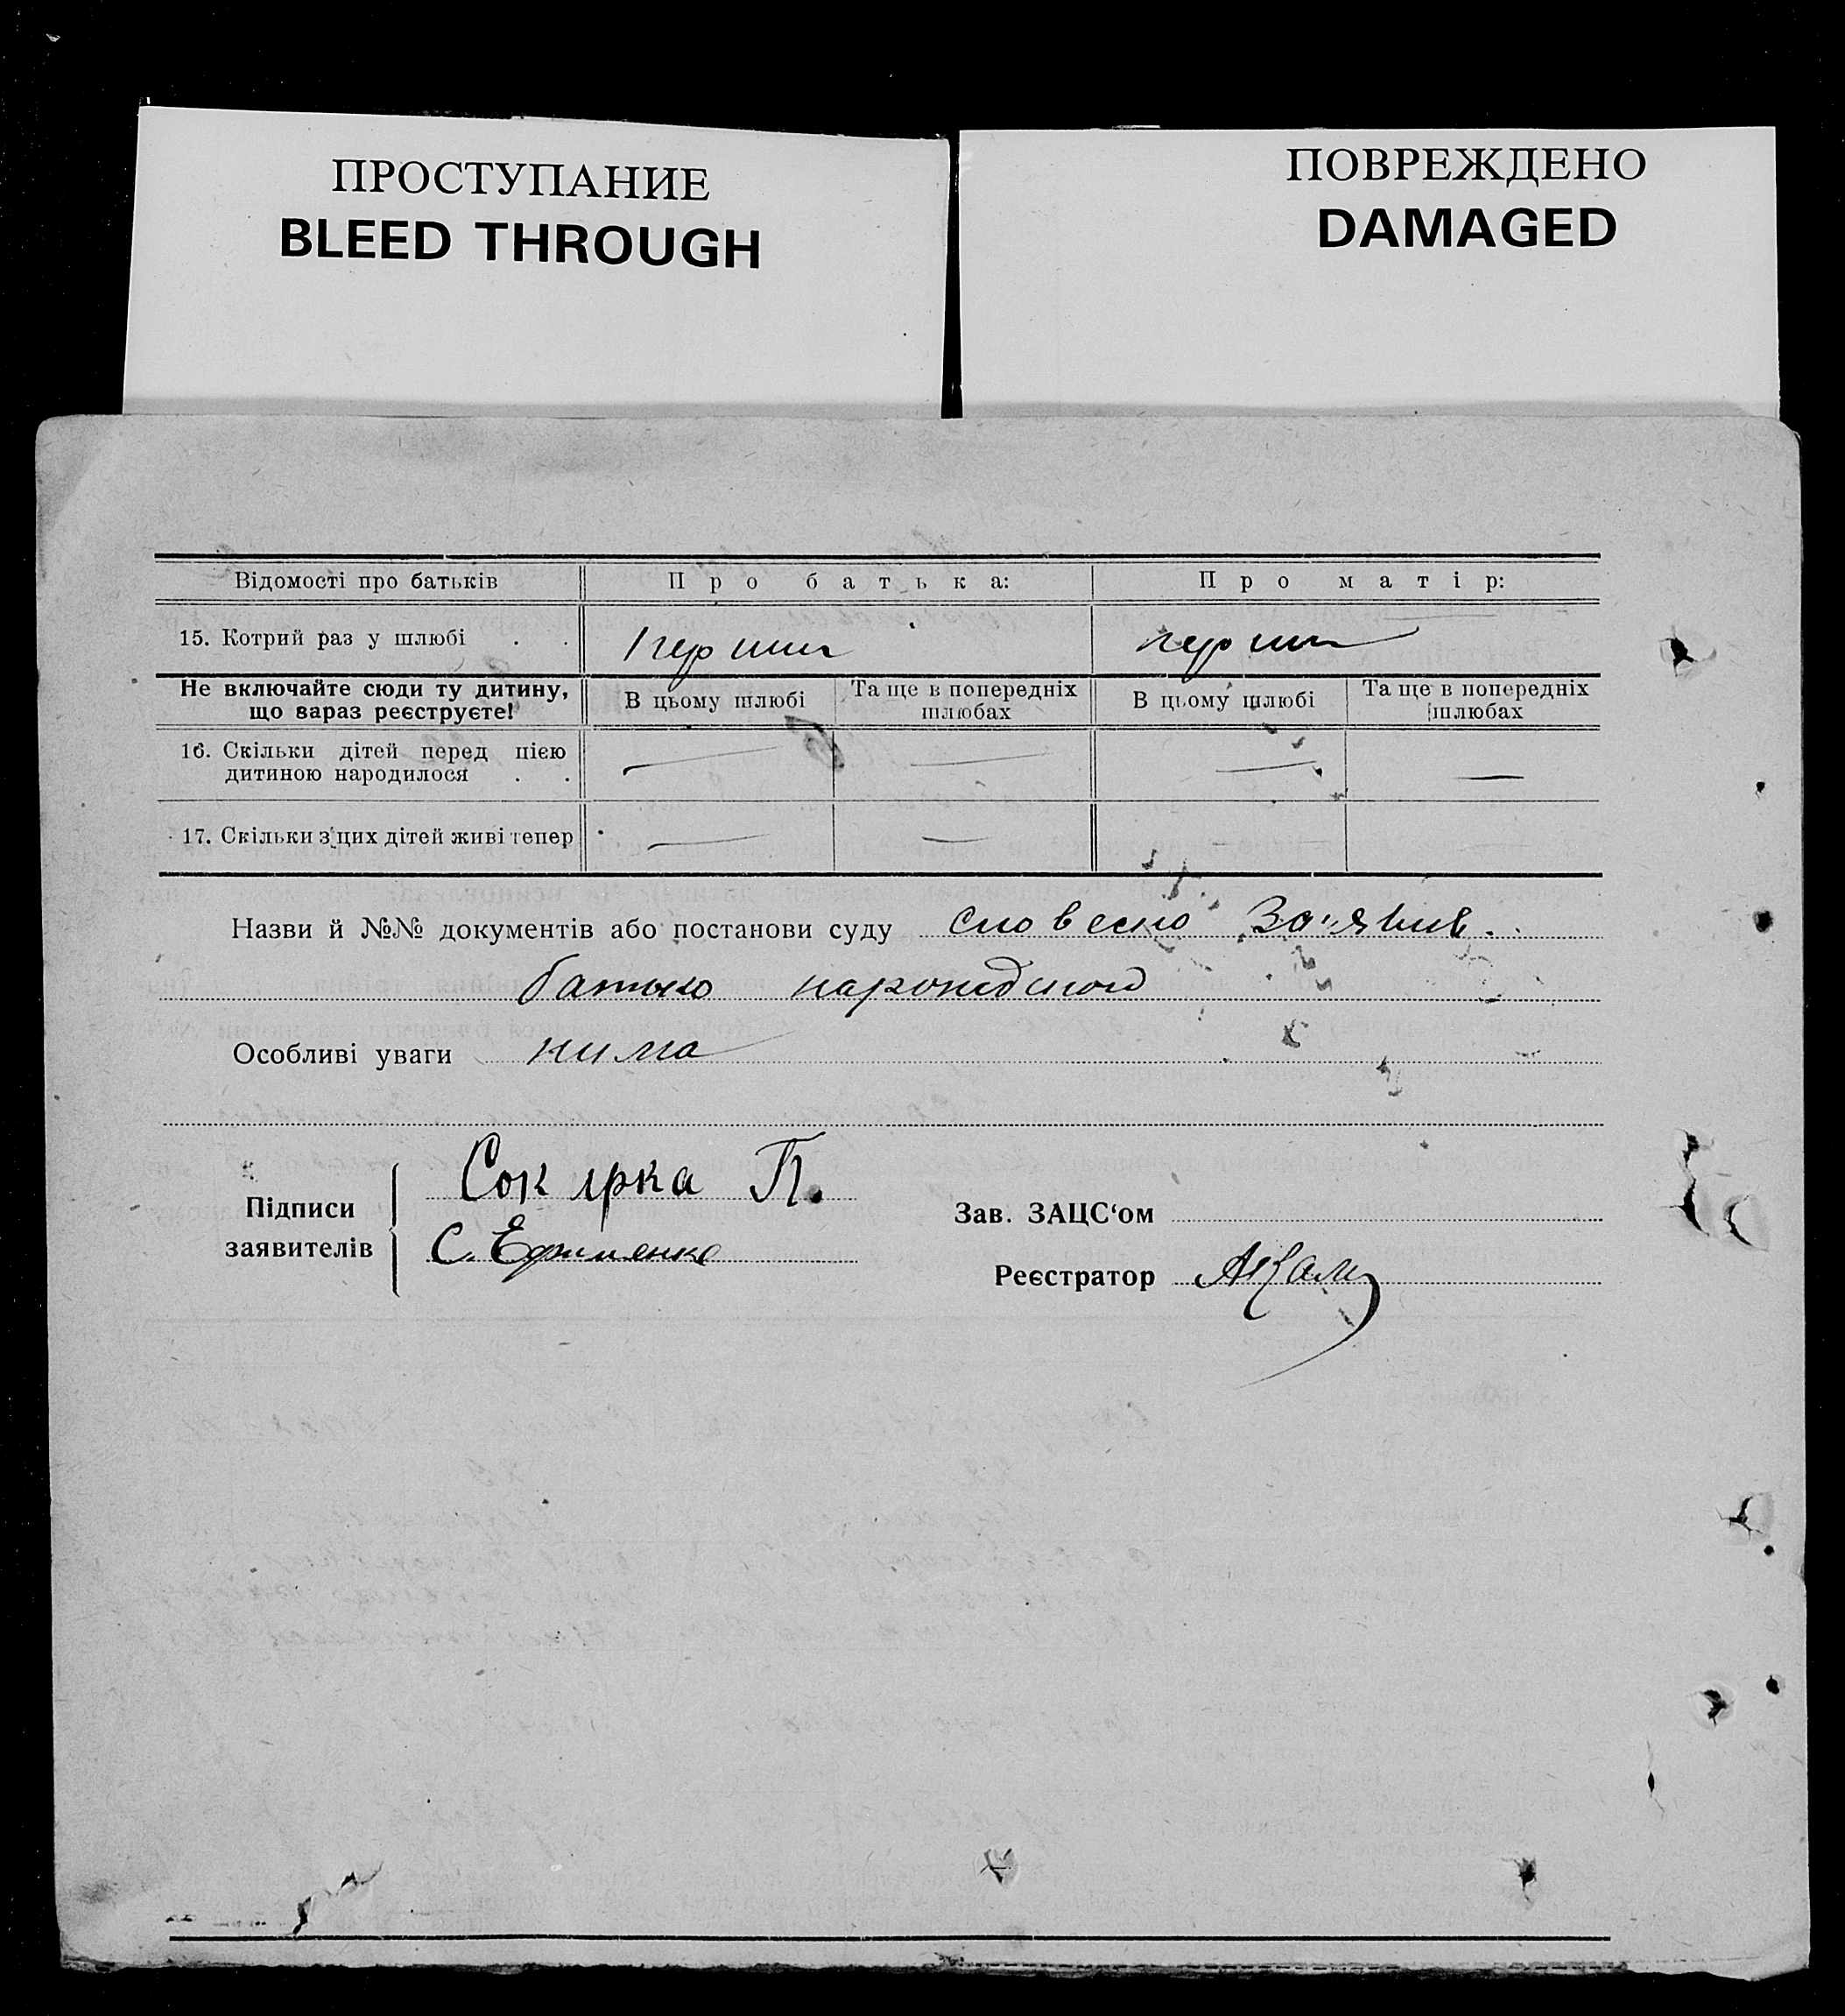 ПРОСТУПАНИЕ
BLEED THROUGH
ПОВРЕЖДЕНО
DAMAGED
Відомості про батьків
Про батька:
Про матір:
15. Котрий раз у шлюбі . .
перший
перший
Не включайте сюди ту дитину,
що зараз реєструєте!
В цьому шлюбі
Та ще в попередніх
шлюбах
В цьому шлюбі
Та ще в попередніх
шлюбах
16. Скільки дітей перед цією
дитиною народилося . .
— — — —
17. Скільки з цих дітей живі тепер
— —
Назви й №№ документів або постанови суду словесно За'явив.
батько
Особливі уваги нима
Підписи
заявителів
Сокирка П.
С. Ефименко
Зав. ЗАЦС‘ом
Реєстратор